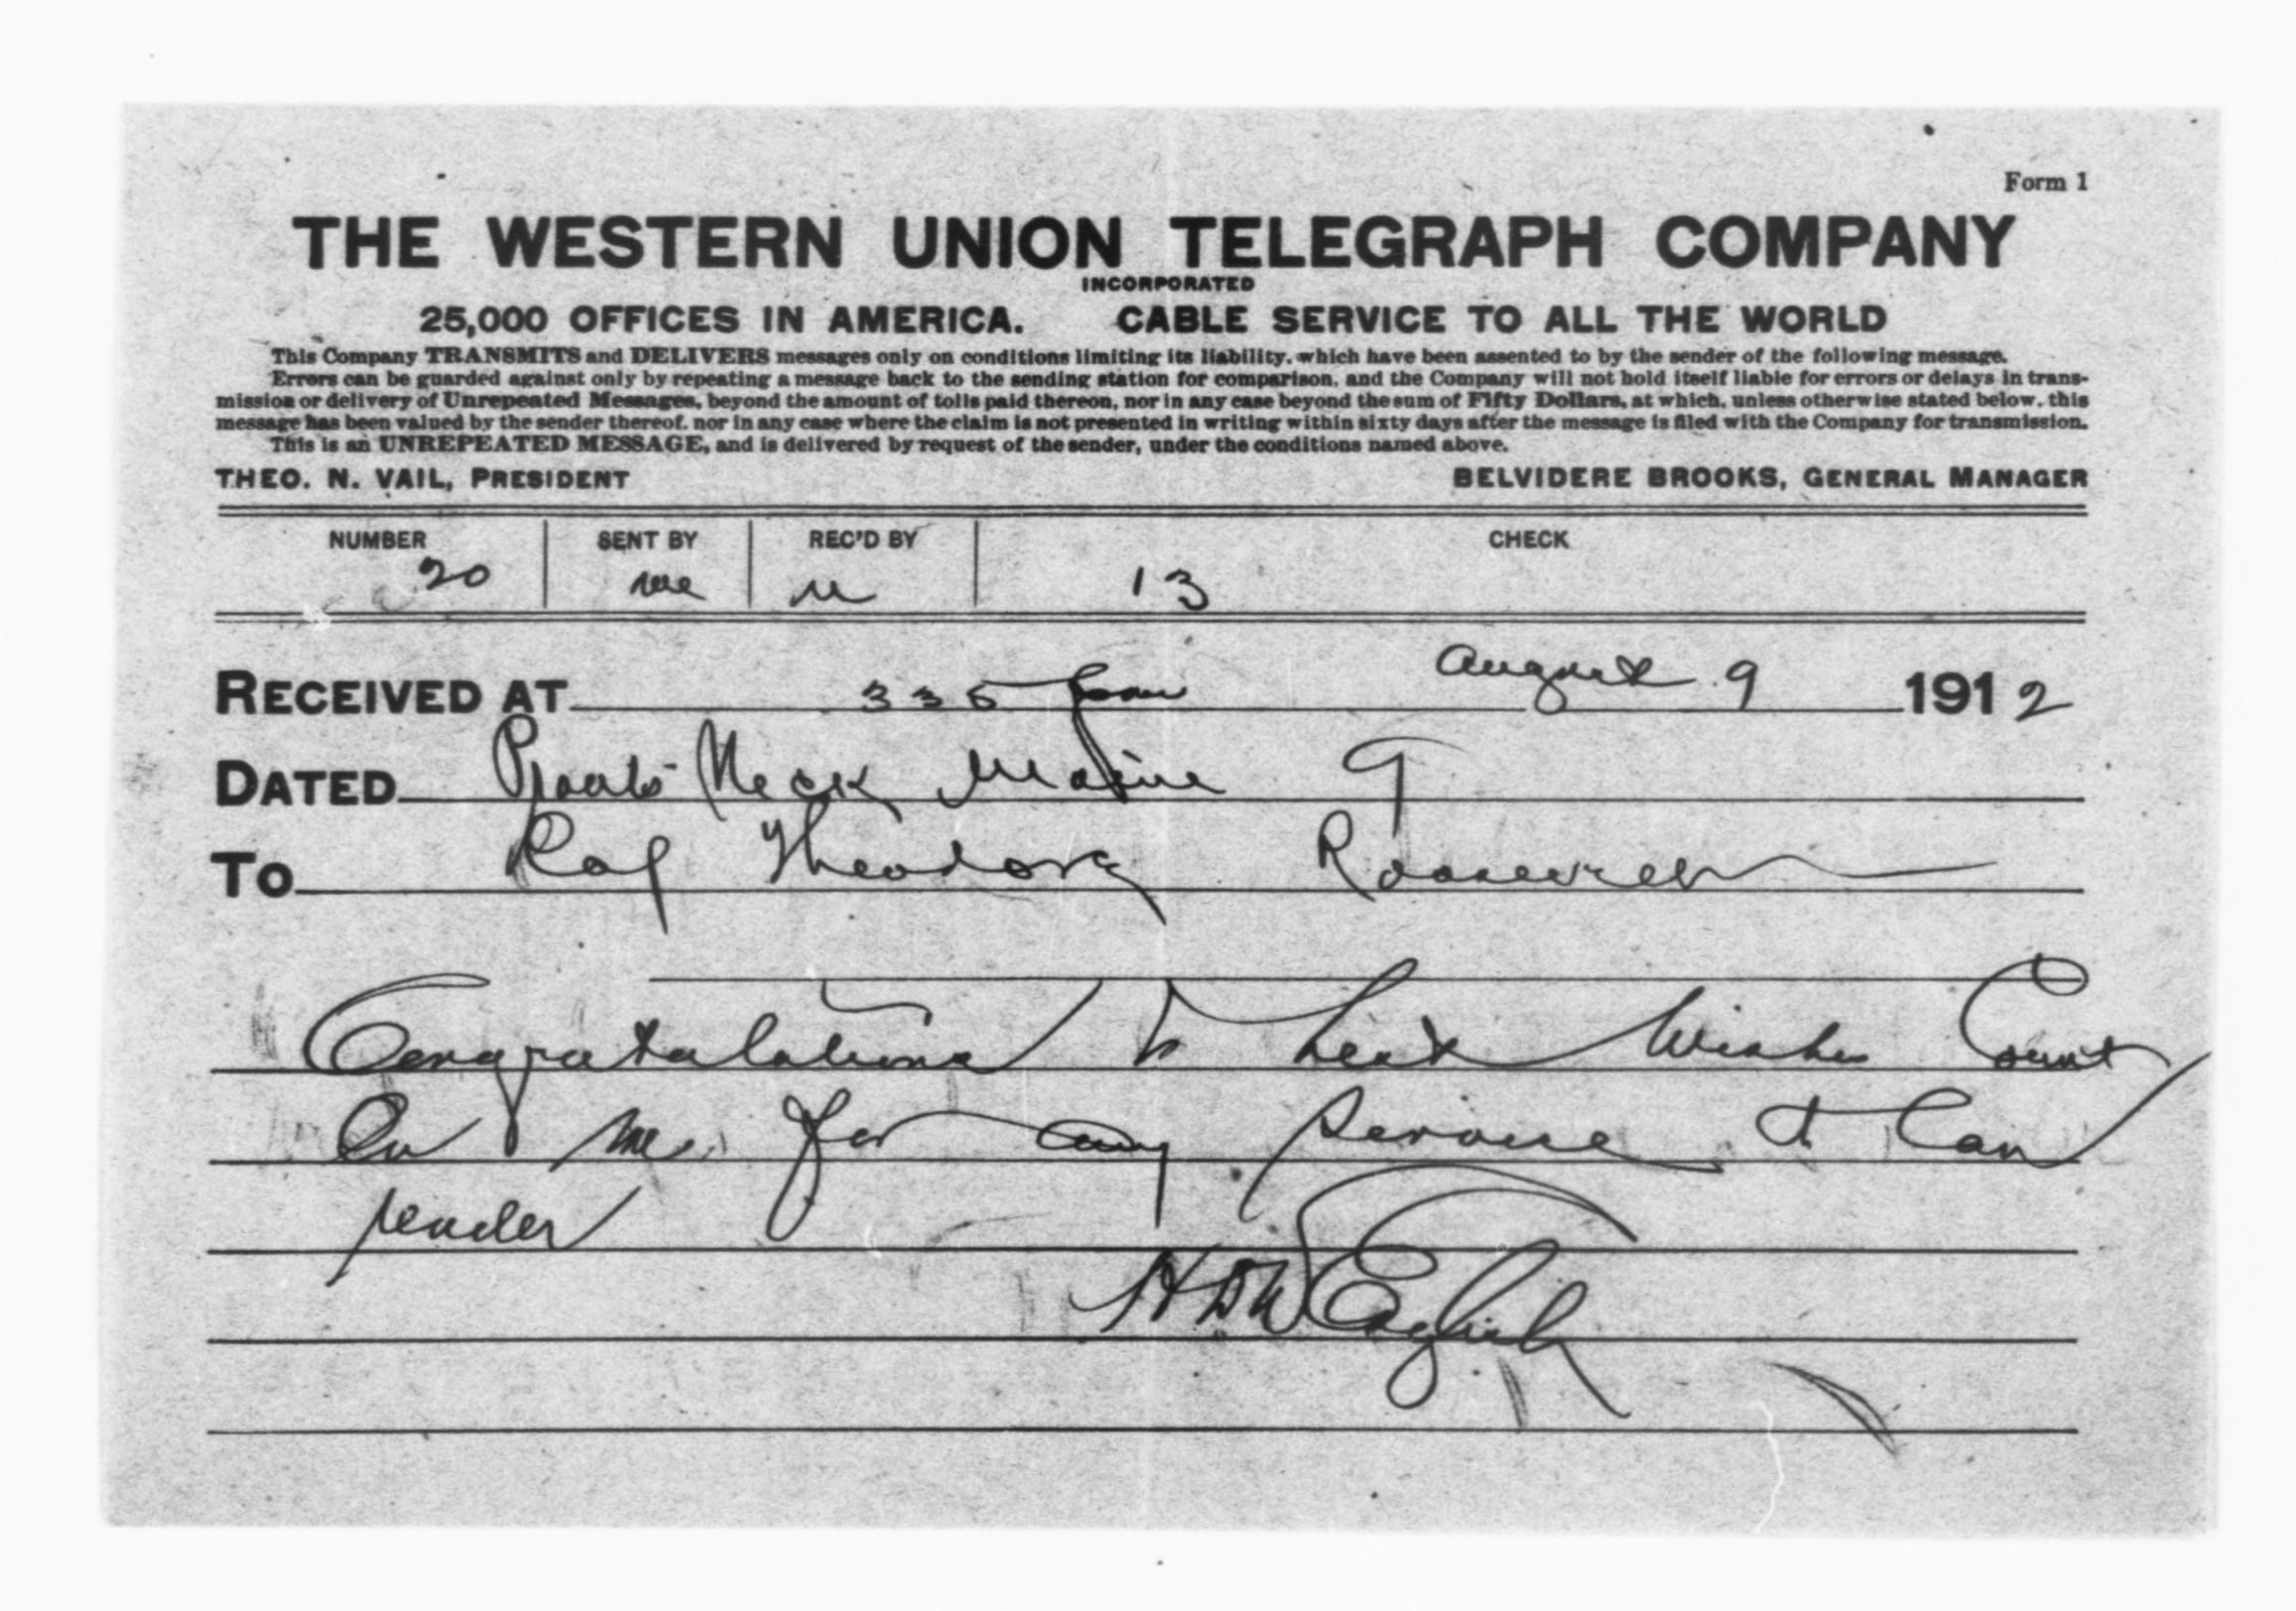 Form 1
THE WESTERN UNION TELEGRAPH COMPANY
INCORPORATED
25,000 OFFICES IN AMERICA. CABLE SERVICE TO ALL THE WORLD
This Company TRANSMITS and DELIVERS messages only on conditions limiting its liability, which have been assented to by the sender of the following message.
Errors can be guarded against only by repeating a message back to the sending station for comparison, and the Company will not hold itself liable for errors or delays in trans-
mission or delivery of Unrepeated Messages, beyond the amount of tolls paid thereon, nor in any case beyond the sum of Fifty Dollars, at which, unless otherwise stated below, this
message has been valued by the sender thereof, nor in any case where the claim is not presented in writing within sixty days after the message is filed with the Company for transmission.
This is an UNREPEATED MESSAGE, and is delivered by request of the sender, under the conditions named above.
THEO. N. VAIL, PRESIDENT BELVIDERE BROOKS, GENERAL MANAGER
NUMBER SENT BY REC'D BY CHECK
20 13
RECEIVED AT 335 August 9 1912
DATED Prouts Neck Maine 9
TO Theodore Roosevelt
Congratulations & best wishes Count
On me for any service I can
render
HDW English